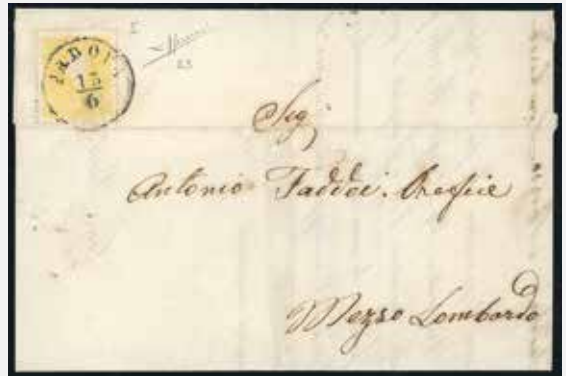 PADOVA
15
6
I
23
Sig.
Antonio Taddei. Orefice
Mezzo Lombardo